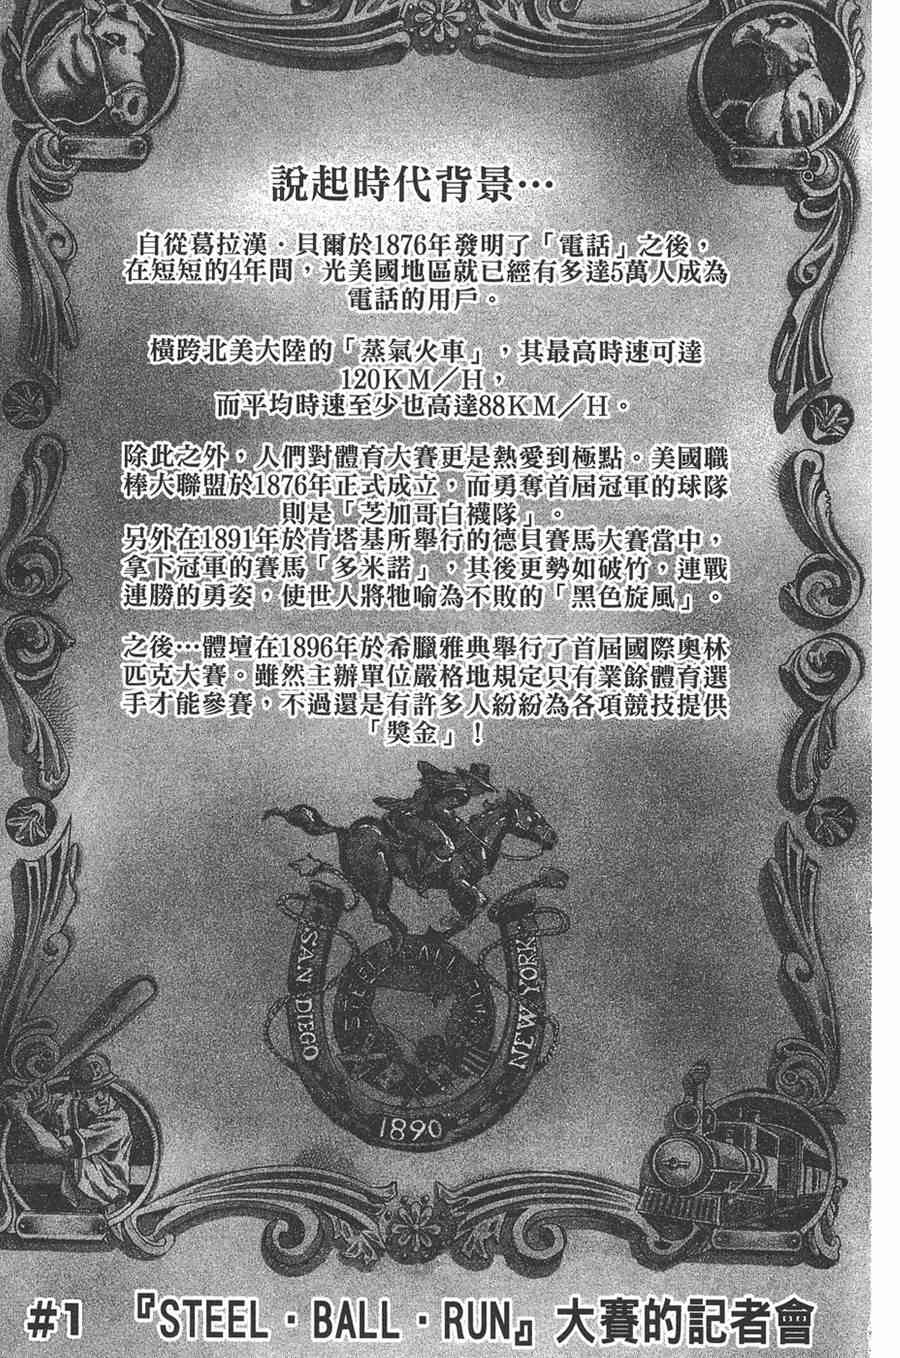 說起時代背景…
自從葛拉漢·貝爾於1876年發明了「電話」之後，
在短短的4年間，光美國地區就已經有多達5萬人成為
電話的用戶。
橫跨北美大陸的「蒸氣火車」，其最高時速可達
120KM／H，
而平均時速至少也高達88KM／H。
除此之外，人們對體育大賽更是熱愛到極點。美國職
棒大聯盟於1876年正式成立，而勇奪首屆冠軍的球隊
則是「芝加哥白襪隊」。
另外在1891年於肯塔基所舉行的德貝賽馬大賽當中，
拿下冠軍的賽馬「多米諾」，其後更勢如破竹，連戰
連勝的勇姿，使世人將牠喻為不敗的「黑色旋風」。
之後…體壇在1896年於希臘雅典舉行了首屆國際奧林
匹克大賽。雖然主辦單位嚴格地規定只有業餘體育選
手才能參賽，不過還是有許多人紛紛為各項競技提供
「獎金」！
STEEL BALL RUN
SAN DIEGO
NEW YORK
1890
#1 『STEEL·BALL·RUN』大賽的記者會